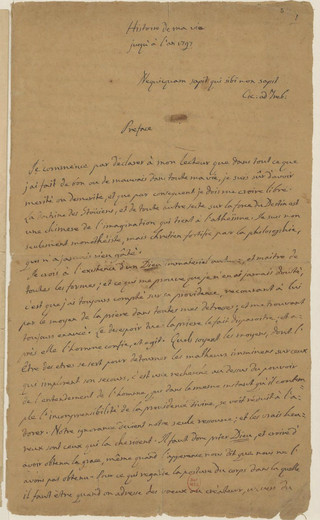 Histoire de ma vie
jusqu'à l'an 1797
Nequicquam sapit qui sibi non sapit
Cic: ad Treb:
Preface
Je commence par declarer à mon lecteur que dans tout ce que
j'ai fait de bon ou de mauvais dans toute ma vie, je suis sûr d'avoir
merité ou demerité, et que par consequent je dois me croire libre.
La doctrine des Stoïciens, et de toute autre secte sur la force du Destin est
une chimere de l'imagination qui tient à l'atheïsme. Je suis non
seulement monotheïste, mais chretien fortifié par la philosophie,
qui n'a jamais rien gâté.
Je crois à l'existence d'un Dieu immateriel auteur, et maitre de
toutes les formes; et ce qui me prouve que je n'en ai jamais douté,
c'est que j'ai toujours compté sur sa providence, recourant à lui
par le moyen de la priere dans toutes mes detresses; et me trouvant
toujours exaucé. Le desespoir tue: la priere le fait disparoitre, et a-
près elle l'homme confie, et agit. Quels soyent les moyens, dont l'
Être des êtres se sert pour detourner les malheurs imminens sur ceux
qui implorent son secours, c'est une recherche au dessus du pouvoir
de l'entendement de l'homme, qui dans le même instant qu'il contem-
ple l'incomprehensibilité de la providence divine, se voit reduit à l'a-
dorer. Notre ignorance devient notre seule ressource; et les vrais heu-
reux sont ceux qui la cherissent. Il faut donc prier Dieu, et croire d'
avoir obtenu la grace, même quand l'apparence nous dit que nous ne l'
avons pas obtenue. Pour ce qui regarde la posture du corps dans laquelle
il faut être quand on adresse des voeux au créateur, un vers du